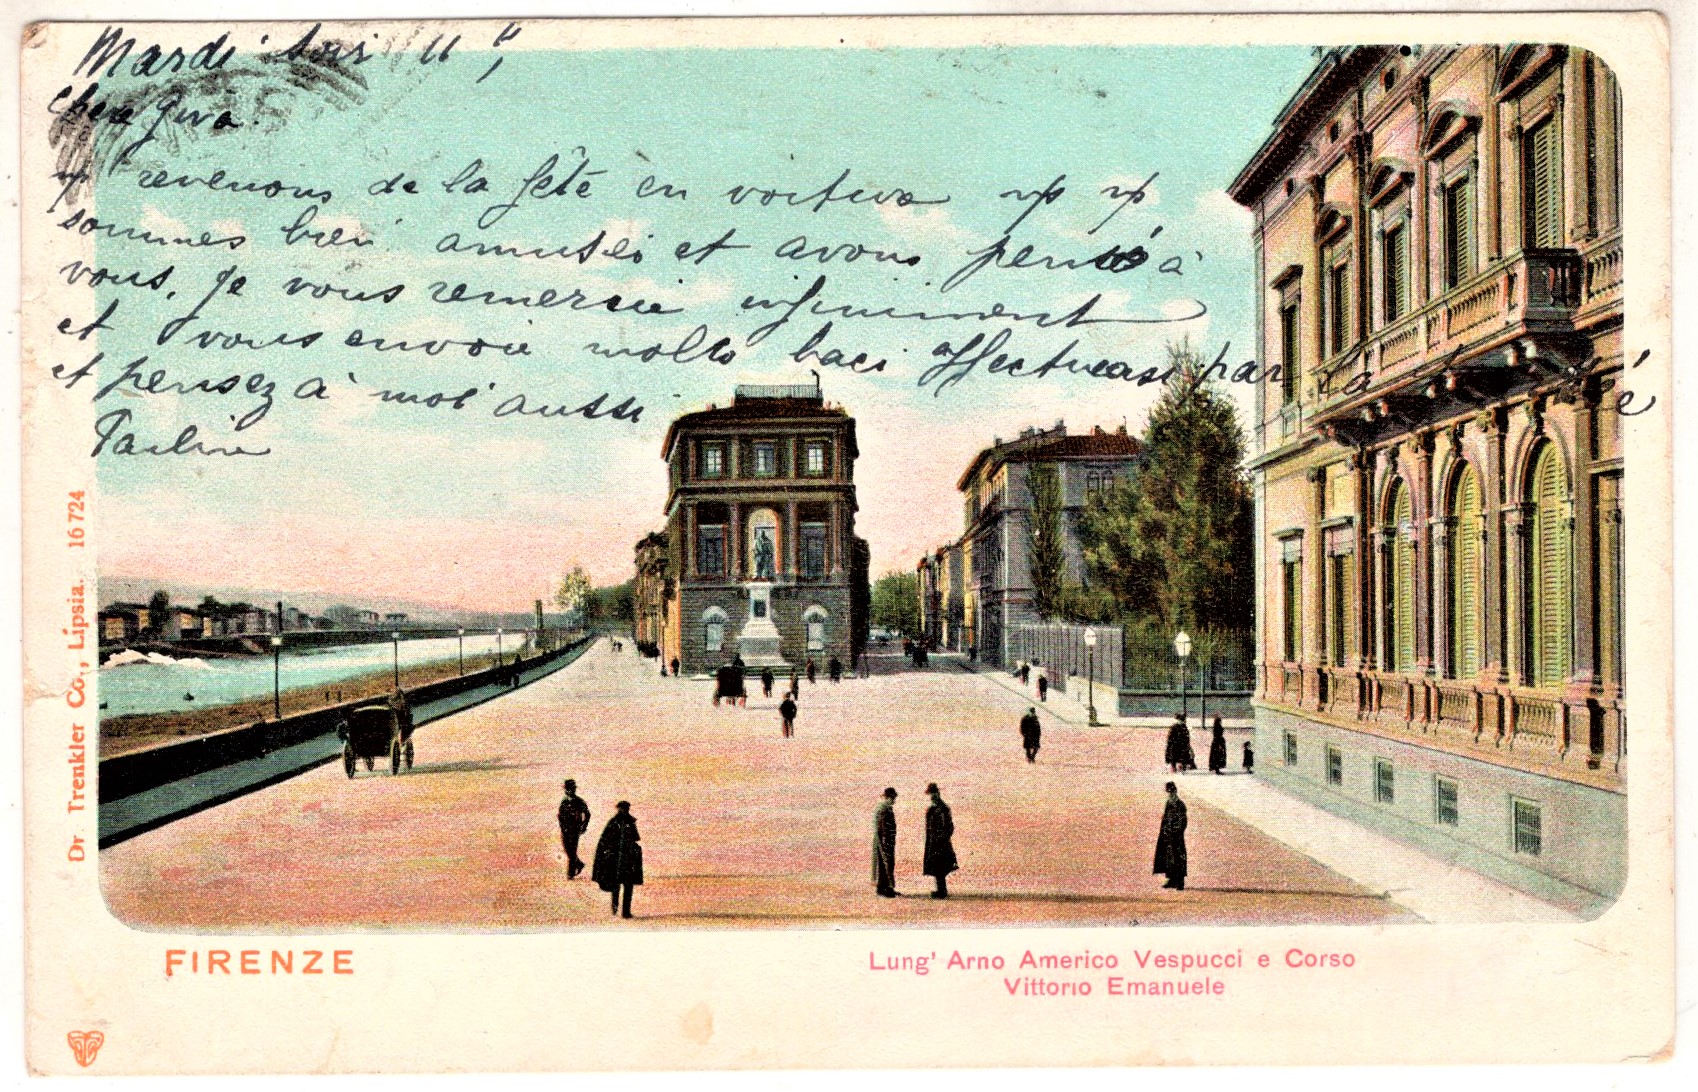 Mardi soir 11 h,
chère
revenons de la fête en voiture
sommes bien amusés et avons pensé à
vous. Je vous remercie infiniment
et vous envoie molto baci affectueasi par la
et pensez à moi aussi
Pauline
Dr Trenkler Co., Lipsia. 16 724
FIRENZE
Lung' Arno Americo Vespucci e Corso
Vittorio Emanuele